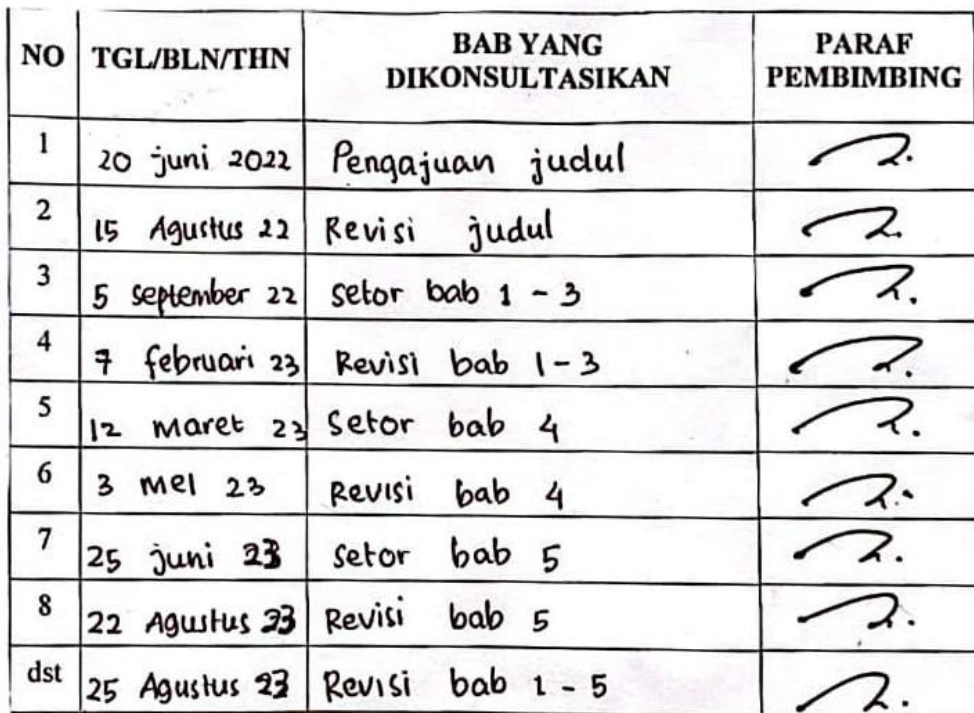 NO TGL/BLN/THN BAB YANG DIKONSULTASIKAN PARAF PEMBIMBING
1 20 juni 2022 Pengajuan judul
2 15 Agustus 22 Revisi judul
3 5 september 22 setor bab 1 - 3
4 7 februari 23 Revisi bab 1-3
5 12 maret 23 setor bab 4
6 3 mei 23 Revisi bab 4
7 25 juni 23 setor bab 5
8 22 Agustus 23 Revisi bab 5
dst 25 Agustus 23 Revisi bab 1 - 5